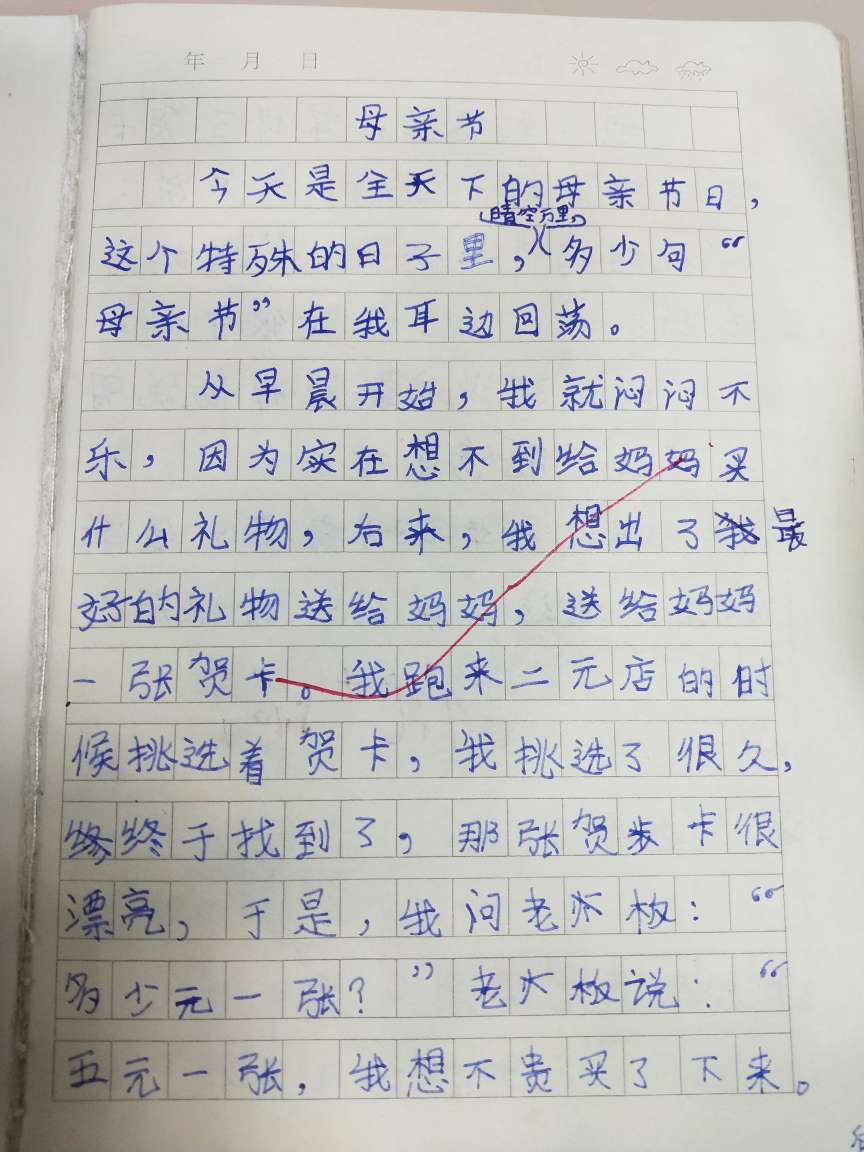 年 月 日
母亲节
今天是全天下的母亲节日，
晴空万里，
这个特殊的日子里，多少句“
母亲节”在我耳边回荡。
从早晨开始，我就闷闷不
乐，因为实在想不到给妈妈买
什么礼物，后来，我想出了最
好的礼物送给妈妈，送给妈妈
一张贺卡。我跑来二元店的时
候挑选着贺卡，我挑选了很久，
终于找到了，那张贺卡很
漂亮，于是，我问老板：“
多少元一张？”老板说：“
五元一张，我想不贵买了下来。